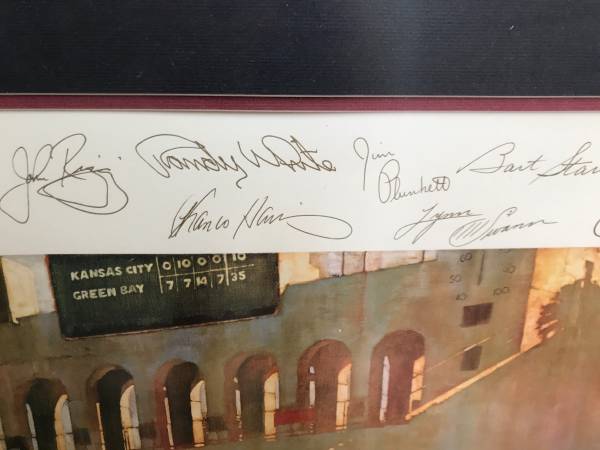 John Riggins Randy White Jim Plunkett Bart Starr
Franco Harris Lynn Swann
KANSAS CITY 0 10 0 0 10
GREEN BAY 7 7 14 7 35
60 50
40 100